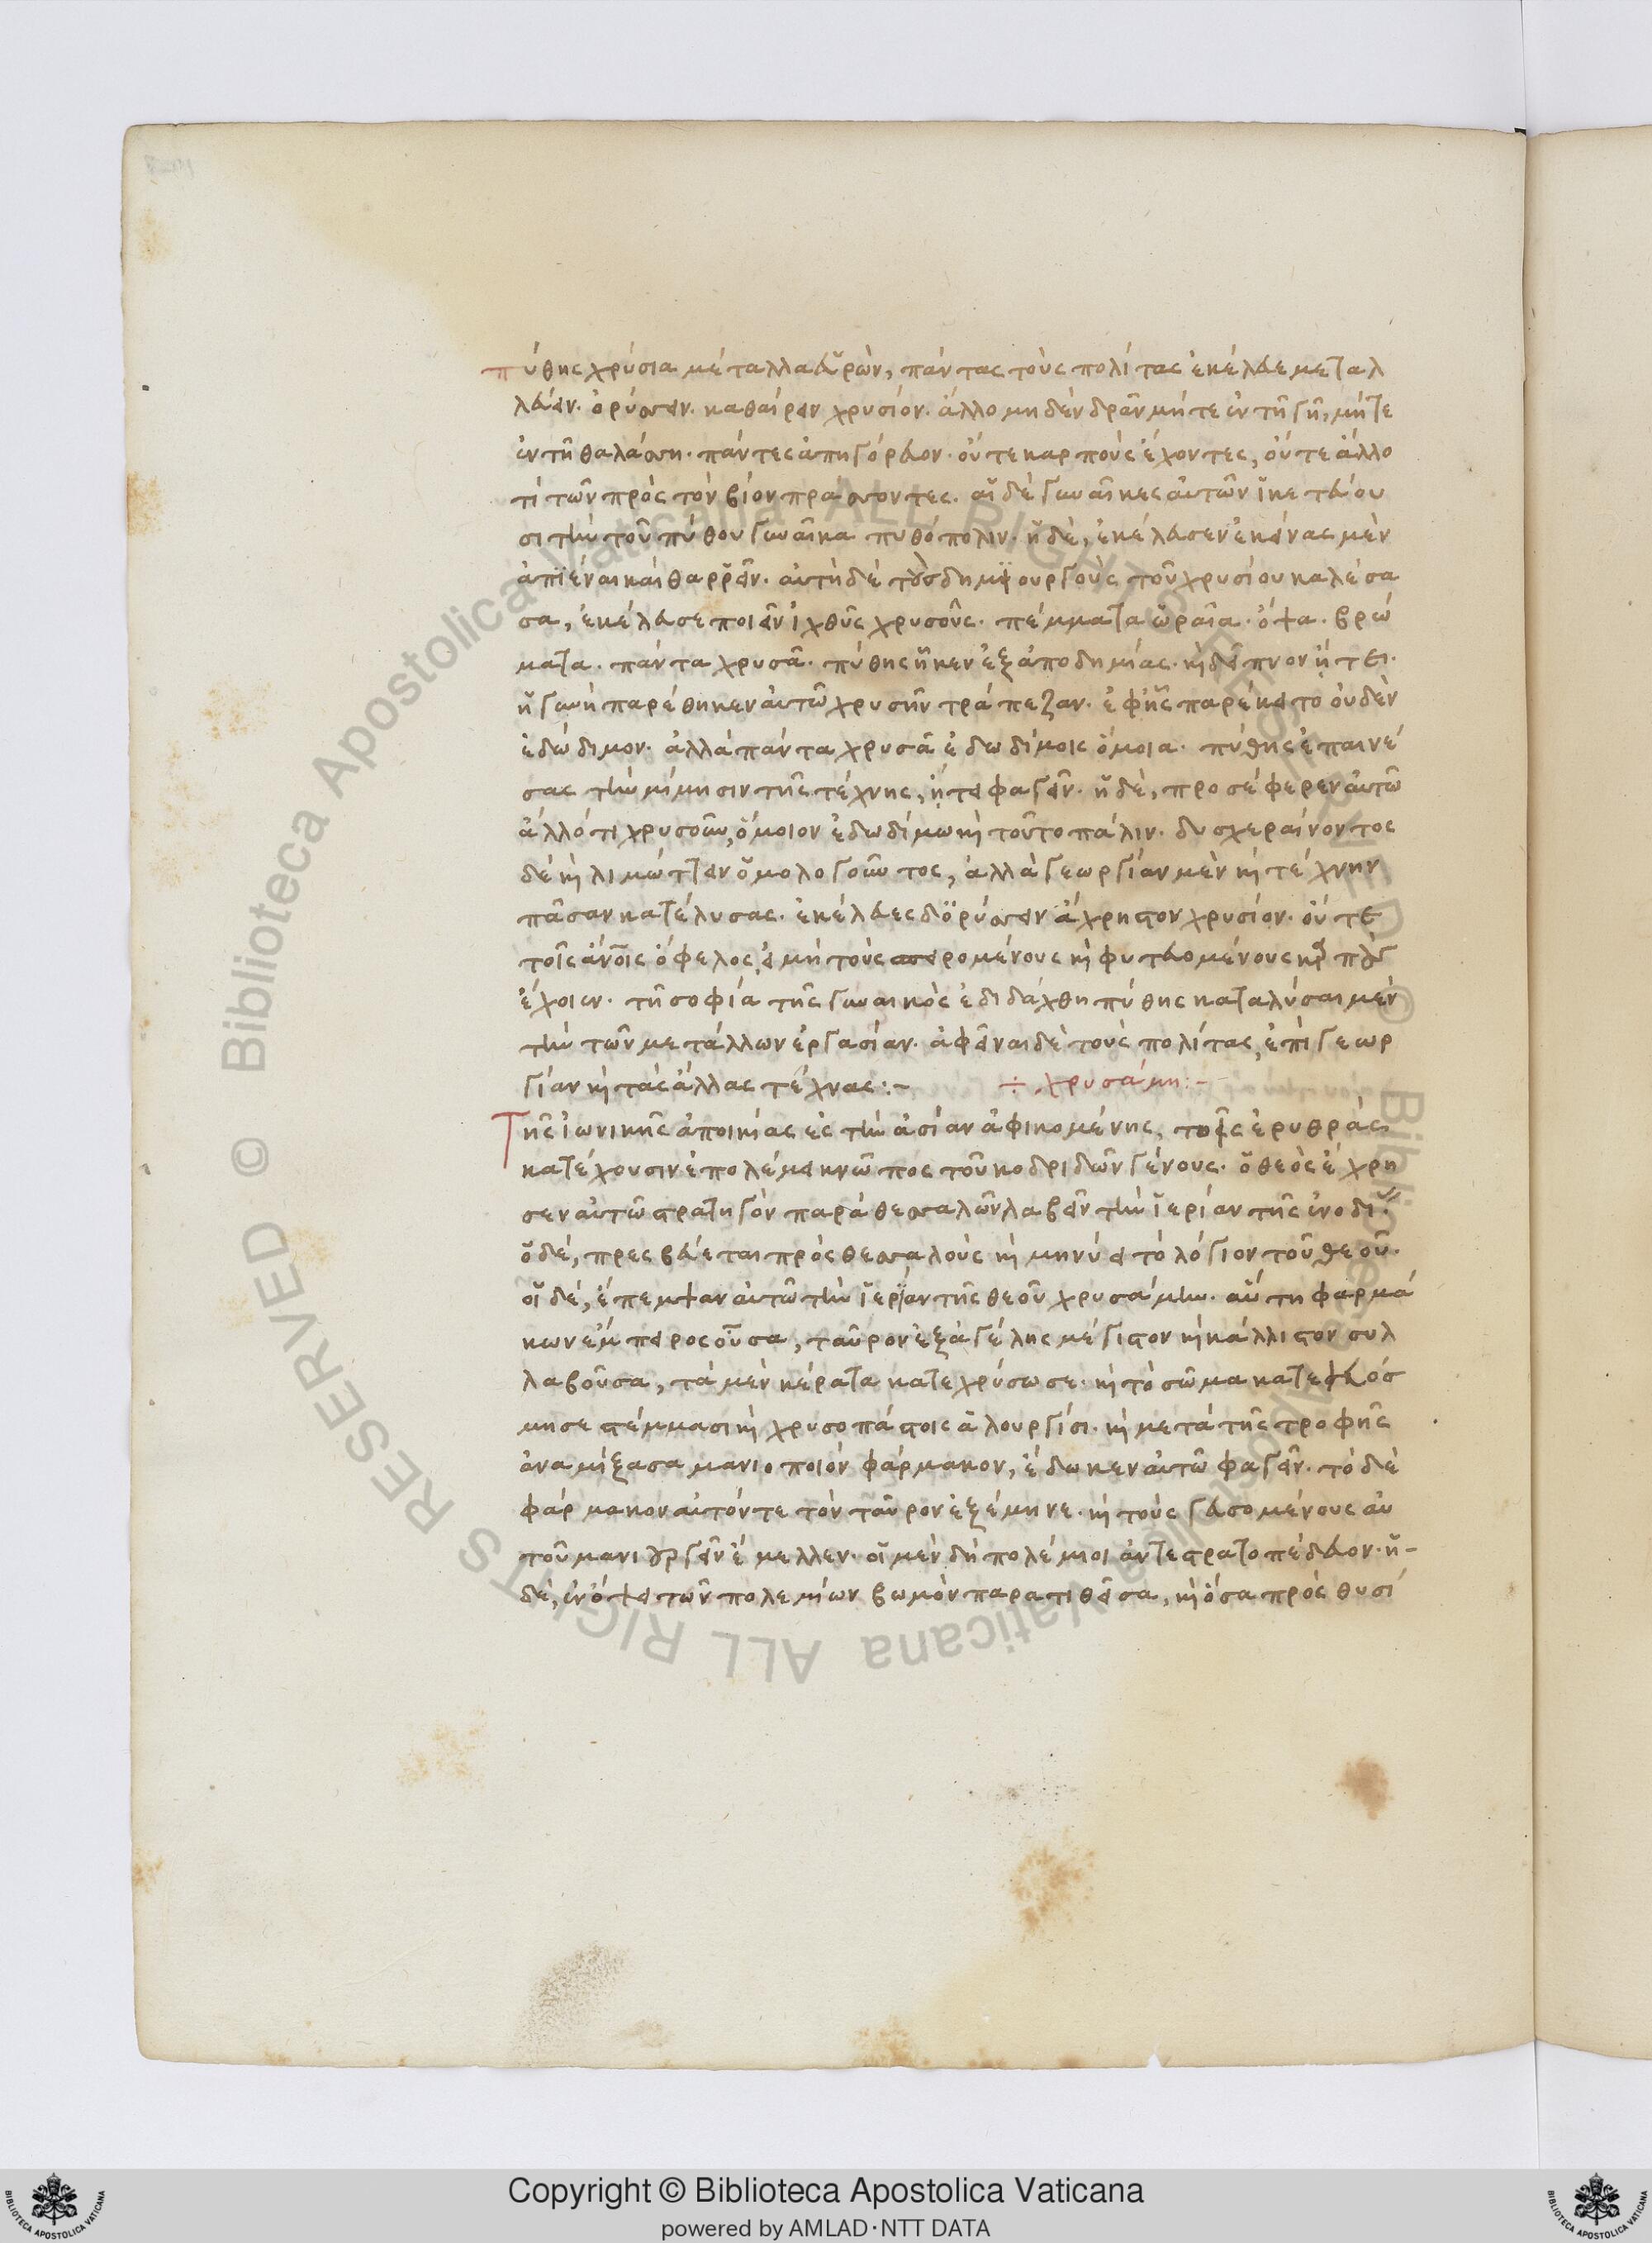 πύθης χρύσια μέταλλα εὑρὼν, πάντας τοὺς πολίτας ἐκέλευε μεταλ
λεύειν. ὀρύσσειν. καθαίρειν χρυσίον. ἄλλο μηδὲν δρᾶν μήτε ἐν τῇ γῇ, μήτε
ἐν τῇ θαλάσσῃ. πάντες ἀπηγόρευον. οὔτε καρποὺς ἔχοντες, οὔτε ἄλλο
τί τῶν πρὸς τὸν βίον πράσσοντες. αἱ δὲ γυναῖκες αὐτῶν ἱκετεύου
σι τὴν τοῦ πύθου γυναῖκα πυθόπολιν. ἡ δὲ, ἐκέλευσεν ἐκείνας μὲν
ἀπϊέναι καὶ θαρρεῖν. αὐτὴ δὲ τοὺς δημιουργοὺς τοῦ χρυσίου καλέσα
σα, ἐκέλευσε ποιεῖν ἰχθῦς χρυσοῦς. πέμματα ὡραῖα. ὄψα. βρώ
ματα. πάντα χρυσᾶ. πύθης ἧκεν ἐξ ἀποδημίας. κὶ δεῖπνον ᾔτει.
ἡ γυνὴ παρέθηκεν αὐτῶ χρυσῆν τράπεζαν. ἐφ ἧς παρέκειτο οὐδὲν
ἐδώδιμον. ἀλλὰ πάντα χρυσᾶ ἐδωδίμοις ὅμοια. πύθης ἐπαινέ
σας τὴν μίμησιν τῆς τέχνης, ᾔτει φαγεῖν. ἡ δὲ, προσέφερεν αὐτῶ
ἄλλό τι χρυσοῦν, ὅμοιον ἐδωδίμω κὶ τοῦτο πάλιν. δυσχεραίνοντος
δὲ κὶ λιμώττειν ὁμολογοῦντος, ἀλλὰ γεωργίαν μὲν κὶ τέχνην
πᾶσαν κατέλυσας. ἐκέλευες δ ὀρύσσειν ἄχρηστον χρυσίον. οὔτε
τοῖς ἀνοῖς ὄφελος, εἰ μὴ τοὺς σπειρομένους κὶ φυτευομένους κὶ πλ
ἔχοιεν. τῇ σοφία τῆς γυναικὸς ἐδιδάχθη πύθης καταλύσαι μὲν
τὴν τῶν μετάλλων ἐργασίαν. ἀφεῖναι δὲ τοὺς πολίτας, ἐπὶ γεωρ
γίαν κὶ τὰς ἄλλας τέχνας:- ÷ χρυσάμη:-
Τῆς ἰωνικῆς ἀποικίας ἐς τὴν ἀσίαν ἀφικομένης, τοῖς ἐρυθράς
κατέχουσιν ἐπολέμει κνῶπος τοῦ κοδριδῶν γένους. ὁ θεὸς ἔχρη
σεν αὐτῶ στρατηγὸν παρὰ θεσσαλῶν λαβεῖν τὴν ἱερίαν τῆς ἐνοδί
ὁ δὲ, πρεσβεύεται πρὸς θεσσαλοὺς κὶ μηνύει τὸ λόγιον τοῦ θεοῦ.
οἱ δὲ, ἔπεμψαν αὐτῶ τὴν ἱερίαν τῆς θεοῦ χρυσάμην. αὕτη φαρμά
κων ἔμπειρος οὖσα, ταῦρον ἐξ ἀγέλης μέγιστον κὶ κάλλιστον συλ
λαβοῦσα, τὰ μὲν κέρατα κατεχρύσωσε. κὶ τὸ σῶμα κατεκόσ
μησε στέμμασι κὶ χρυσοπάστοις ἁλουργίσι. κὶ μετὰ τῆς τροφῆς
ἀναμίξασα μανιοποιὸν φάρμακον, ἔδωκεν αὐτῶ φαγεῖν. τὸ δὲ
φάρμακον αὐτόν τε τὸν ταῦρον ἐξέμηνε. κὶ τοὺς γευσομένους αὐ
τοῦ μανιουργεῖν ἔμελλεν. οἱ μὲν δὴ πολέμιοι ἀντεστρατοπέδευον. ἡ-
δὲ, ἐν ὄψει τῶν πολεμίων βωμὸν παρατιθεῖσα, κὶ ὅσα πρὸς θυσί
Copyright © Biblioteca Apostolica Vaticana
powered by AMLAD·NTT DATA
© Biblioteca Apostolica Vaticana ALL RIGHTS RESERVED © Biblioteca Apostolica Vaticana ALL RIGHTS RESERVED
BIBLIOTECA APOSTOLICA VATICANA
BIBLIOTECA APOSTOLICA VATICANA